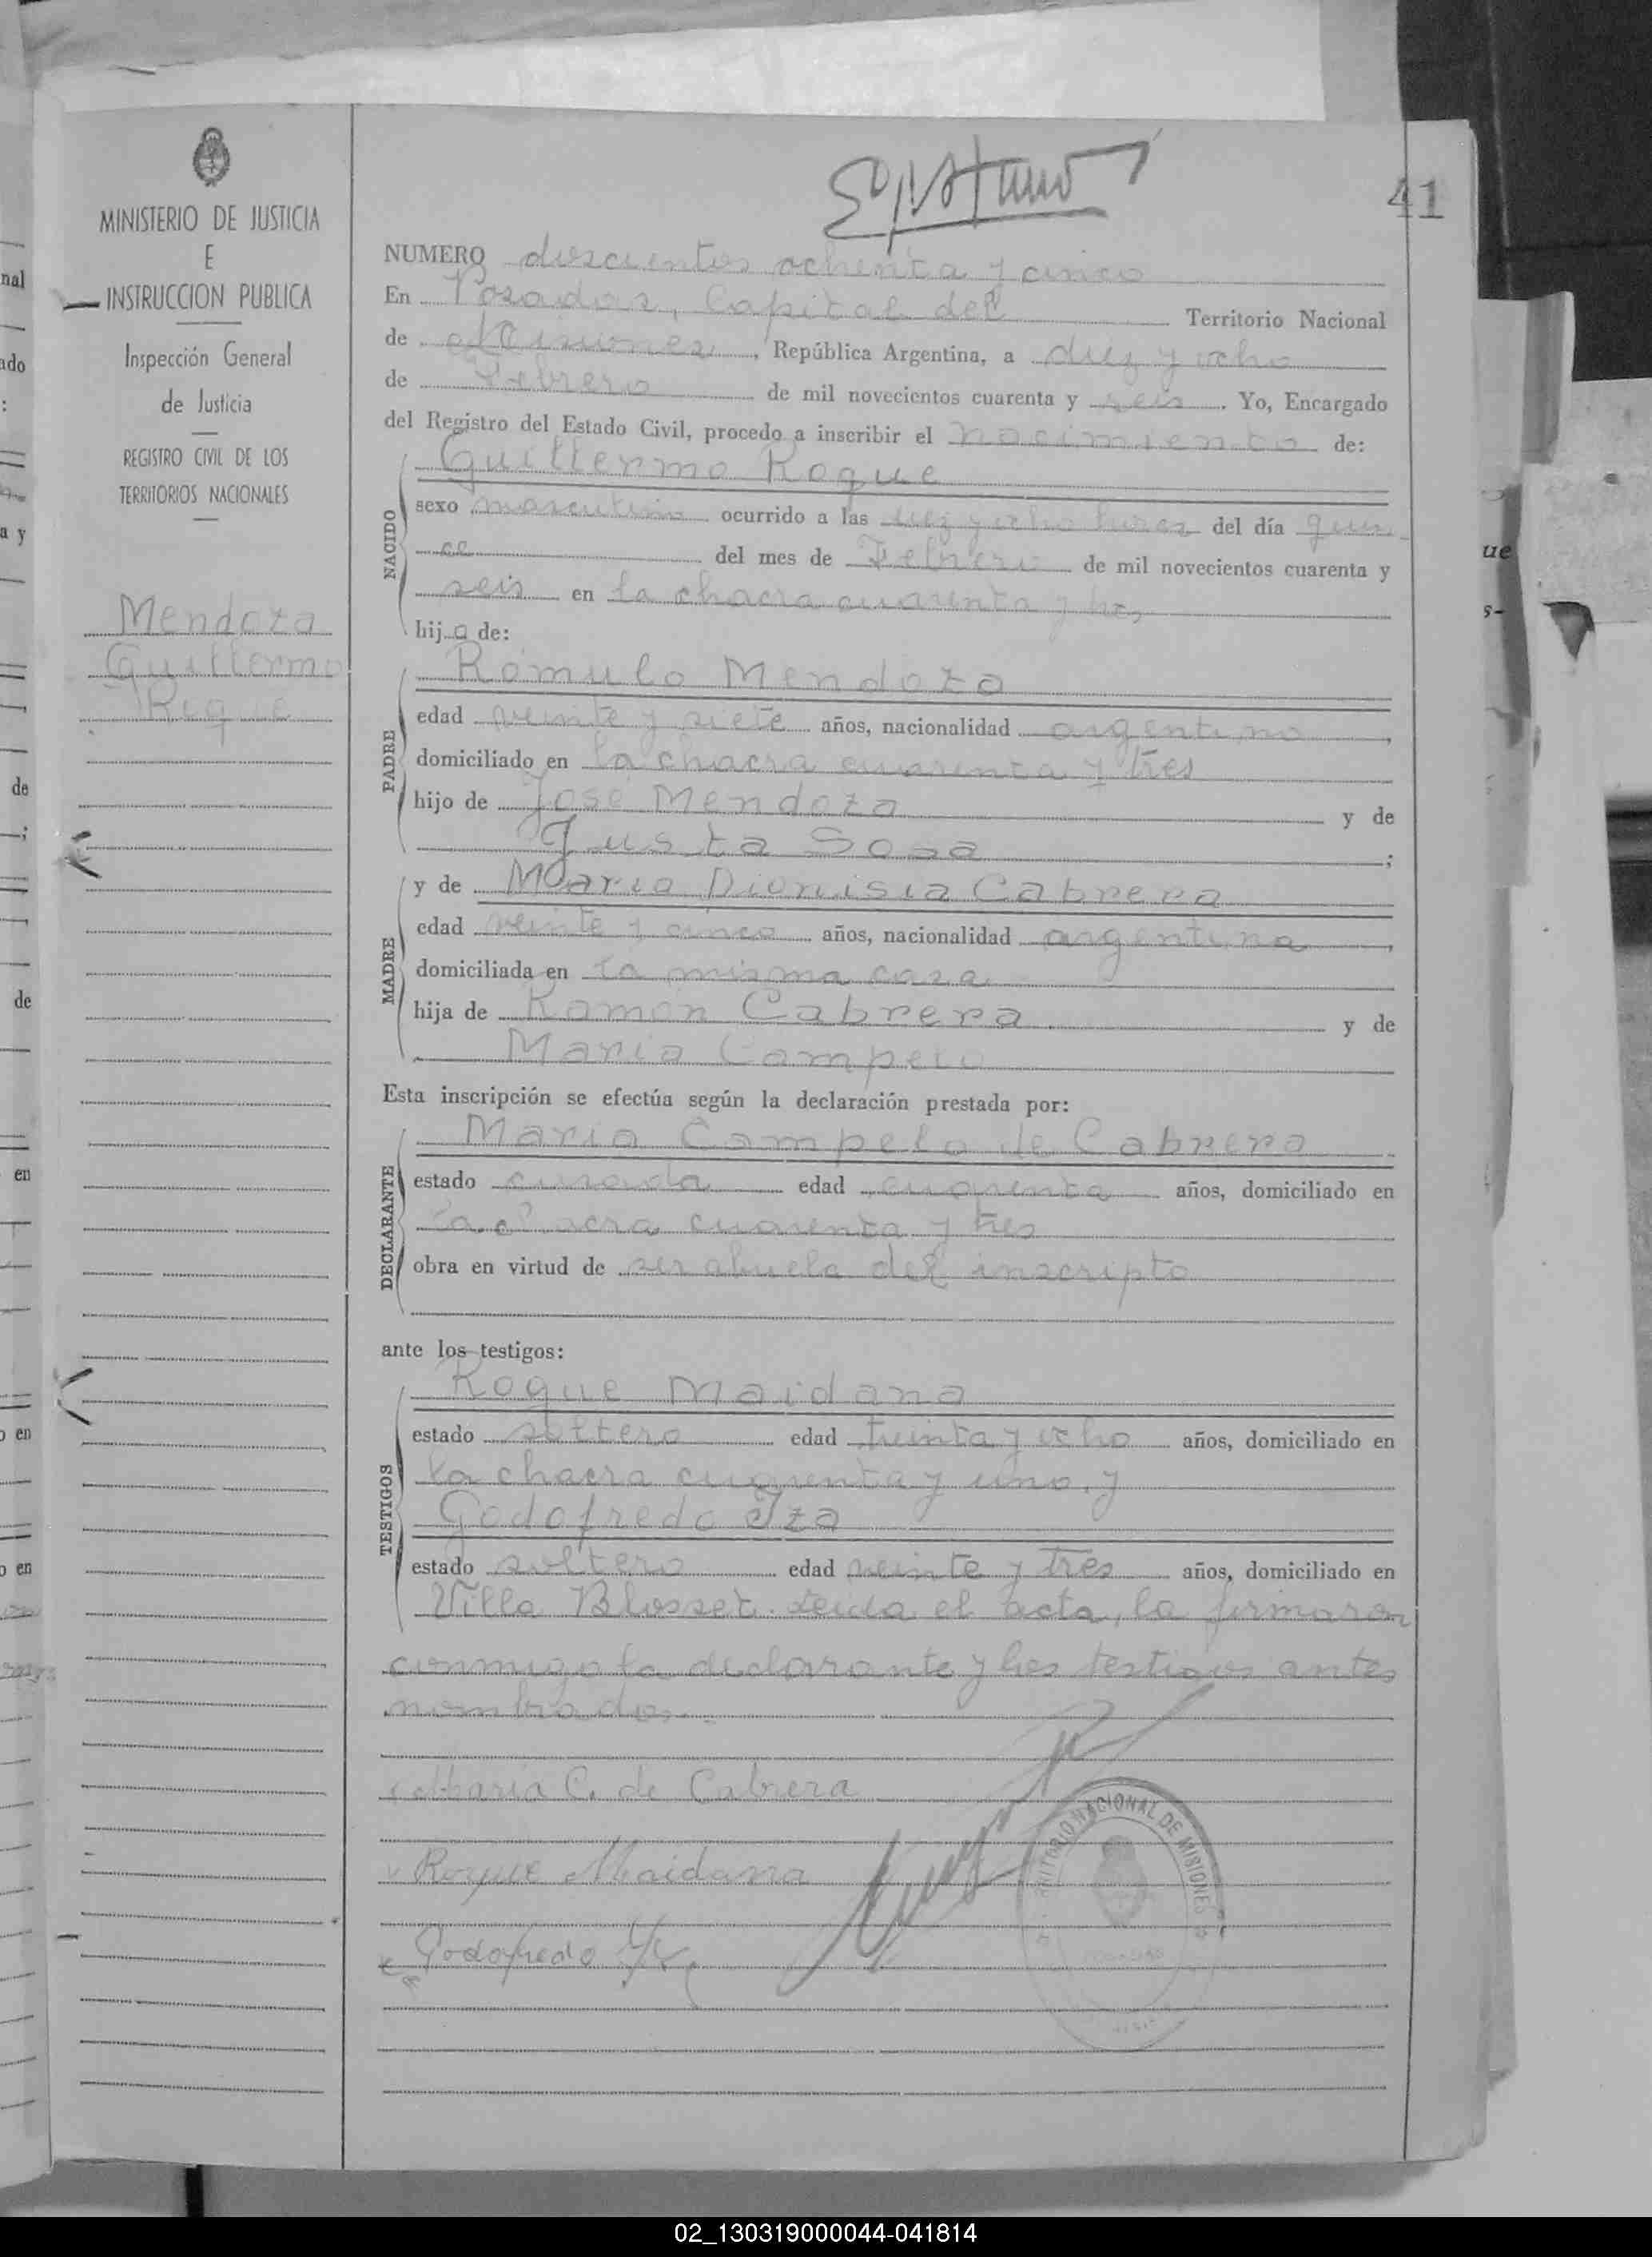 41
MINISTERIO DE JUSTICIA
E
INSTRUCCION PUBLICA
Inspección General
de Justicia
REGISTRO CIVIL DE LOS
TERRITORIOS NACIONALES
Mendoza
Guillermo
Roque
NUMERO doscientos ochenta y cinco
En Posadas, Capital del Territorio Nacional
de Misiones, República Argentina, a diez y ocho
de Febrero de mil novecientos cuarenta y seis. Yo, Encargado
del Registro del Estado Civil, procedo a inscribir el nacimiento de:
NACIDO
Guillermo Roque
sexo masculino ocurrido a las diez y ocho horas del día quin
ce del mes de Febrero de mil novecientos cuarenta y
seis en la chacra cuarenta y tres
hijo de:
PADRE
Rómulo Mendoza
edad veinte y siete años, nacionalidad argentino,
domiciliado en la chacra cuarenta y tres
hijo de José Mendoza y de
Justa Sosa;
MADRE
y de Maria Dionisia Cabrera
edad veinte y cinco años, nacionalidad argentina,
domiciliada en la misma casa
hija de Ramón Cabrera y de
Maria Campelo
Esta inscripción se efectúa según la declaración prestada por:
DECLARANTE
Maria Campelo de Cabrera
estado casada edad cuarenta años, domiciliado en
la chacra cuarenta y tres
obra en virtud de ser abuela del inscripto
ante los testigos:
TESTIGOS
Roque Maidana
estado soltero edad treinta y ocho años, domiciliado en
la chacra cuarenta y uno, y
Godofredo Iza
estado soltero edad veinte y tres años, domiciliado en
Villa Blosset. Leida el acta, la firmaron
conmigo la declarante y los testigos antes
nombrados.-
Maria C. de Cabrera
Roque Maidana
Godofredo
TERRITORIO NACIONAL DE MISIONES
nal
ado
:
a y
de
;
de
en
o en
o en
ue
s-
02_130319000044-041814